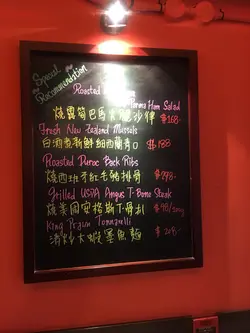 Special
Recommendation
Roasted
Parma Ham Salad
燒露筍巴馬火腿沙律 $168
Fresh New Zealand Mussels
白酒煮新鮮紐西蘭青口 $188
Roasted Duroc Back Ribs
燒西班牙紅毛豬排骨 $298
Grilled USDA Angus T-Bone Steak
燒美國安格斯T-骨扒
King Prawn Tonnarelli
清炒大蝦墨魚麵 $208